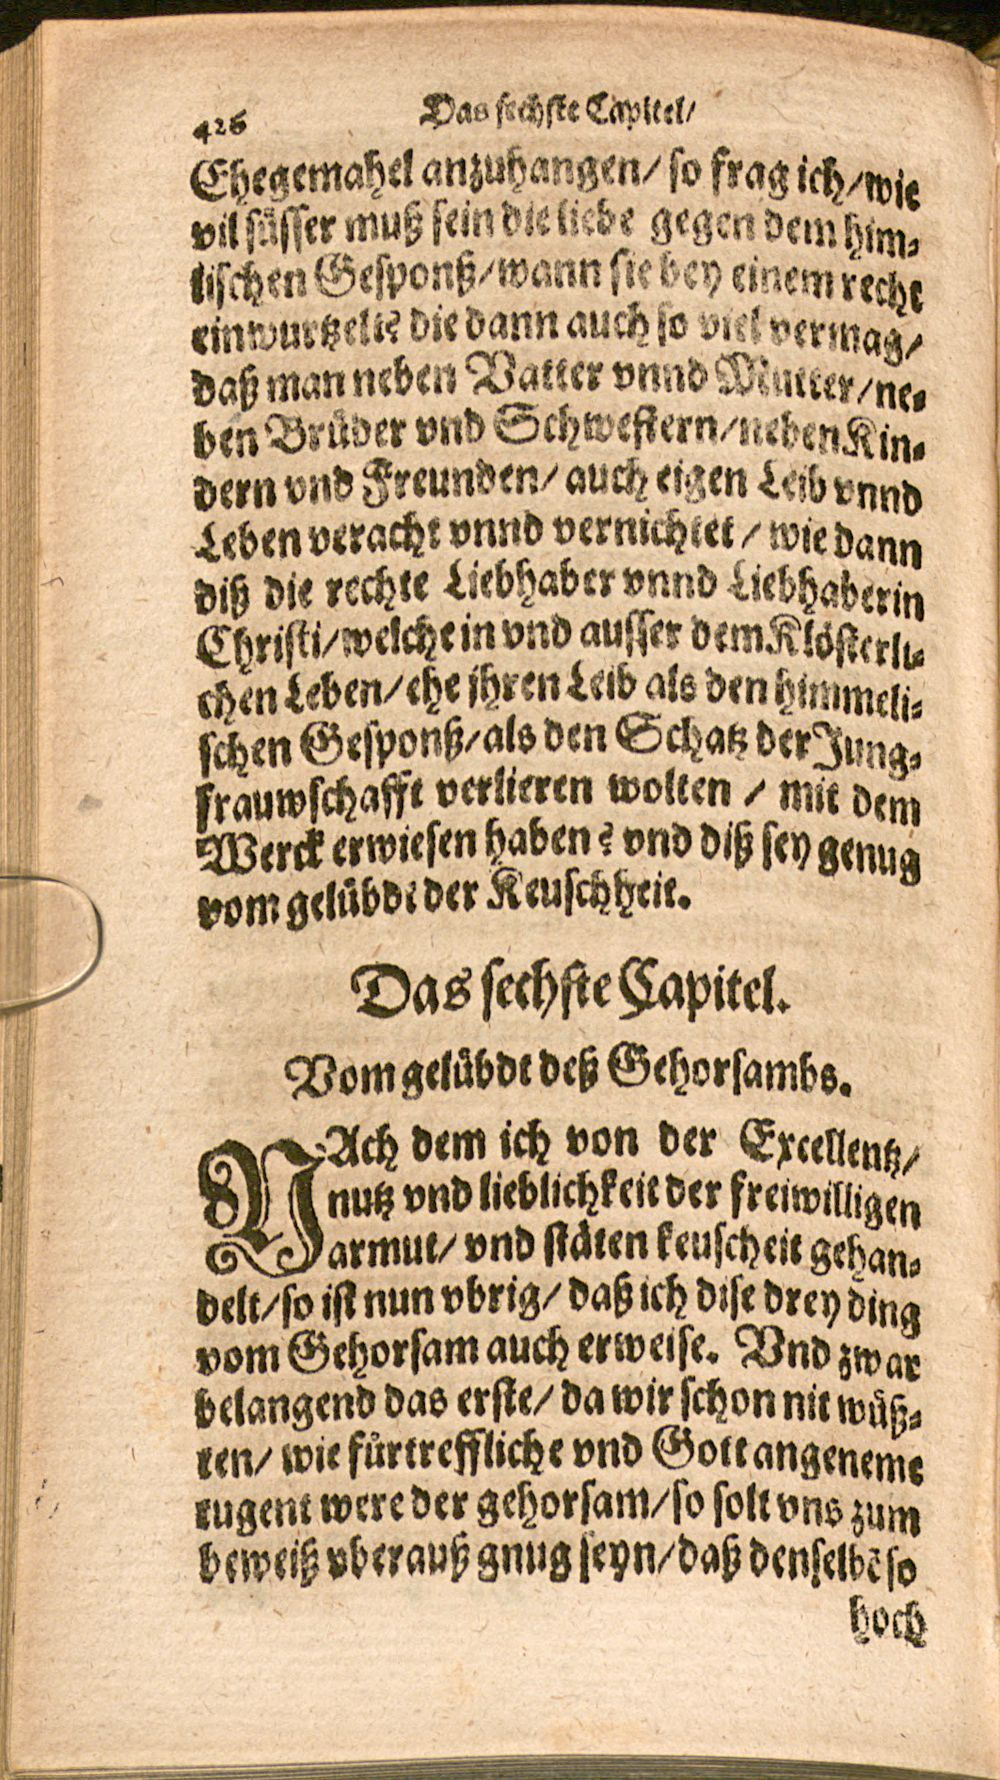 426 Das sechste Capitel/
Ehegemahel anzuhangen/ so frag ich/ wie
vil süsser muß sein die liebe gegen dem him-
lischen Gesponß/ wann sie bey einem recht
einwurtzelt? die dann auch so viel vermag/
daß man neben Vatter vnnd Mutter/ ne-
ben Brüder vnd Schwestern/ neben Kin-
dern vnd Freunden/ auch eigen Leib vnnd
Leben veracht vnnd vernichtet/ wie dann
diß die rechte Liebhaber vnnd Liebhaberin
Christi/ welche in vnd ausser dem Klösterli-
chen Leben/ ehe jhren Leib als den himmeli-
schen Gesponß/ als den Schatz der Jung-
frauwschafft verlieren wolten/ mit dem
Werck erwiesen haben? vnd diß sey genug
vom gelübdt der Keuschheit.
Das sechste Capitel.
Vom gelübdt deß Gehorsambs.
NAch dem ich von der Excellentz/
nutz vnd lieblichkeit der freiwilligen
armut/ vnd stäten keuscheit gehan-
delt/ so ist nun vbrig/ daß ich dise drey ding
vom Gehorsam auch erweise. Vnd zwar
belangend das erste/ da wir schon nit wüß-
ten/ wie fürtreffliche vnd Gott angeneme
tugent were der gehorsam/ so solt vns zum
beweiß vberauß gnug seyn/ daß denselbē so
hoch